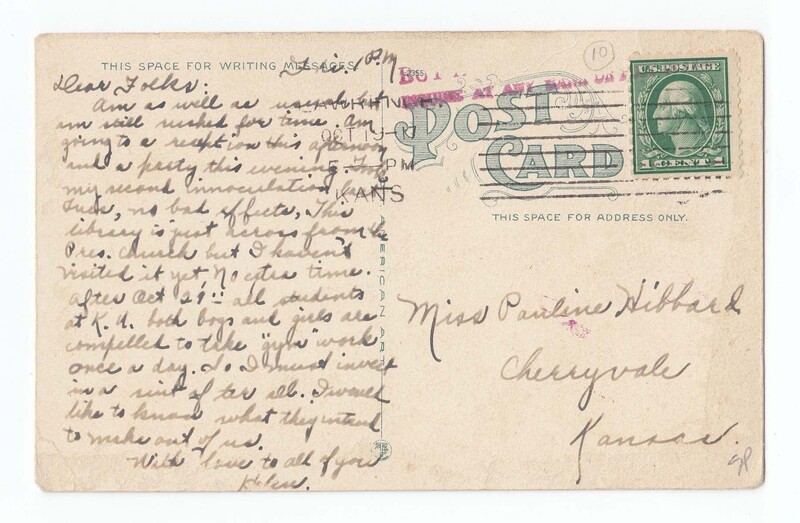 THIS SPACE FOR WRITING MESSAGES
Fri. 1 P.M
Dear Folks:
Am as well as usual but
am still rushed for time. Am
going to a reception this afternoon
and a party this evening. Took
my second innoculation
Tues, no bad effects, This
library is just across from the
Pres. Church but I haven't
visited it yet, No extra time.
After Oct 29 all students
at K. U. both boys and girls are
compelled to take "gym" work
once a day. So I must invest
in a suit after all. I would
like to know what they intend
to make out of us.
With love to all of you
Helen.
AMERICAN ART
A-2355
BUY
AT ANY BANK OR
OCT 19
5 PM
KANS
10
POST
CARD
U.S. POSTAGE
1 CENT 1
THIS SPACE FOR ADDRESS ONLY.
Miss Pauline Hibbard
Cherryvale
Kansas.